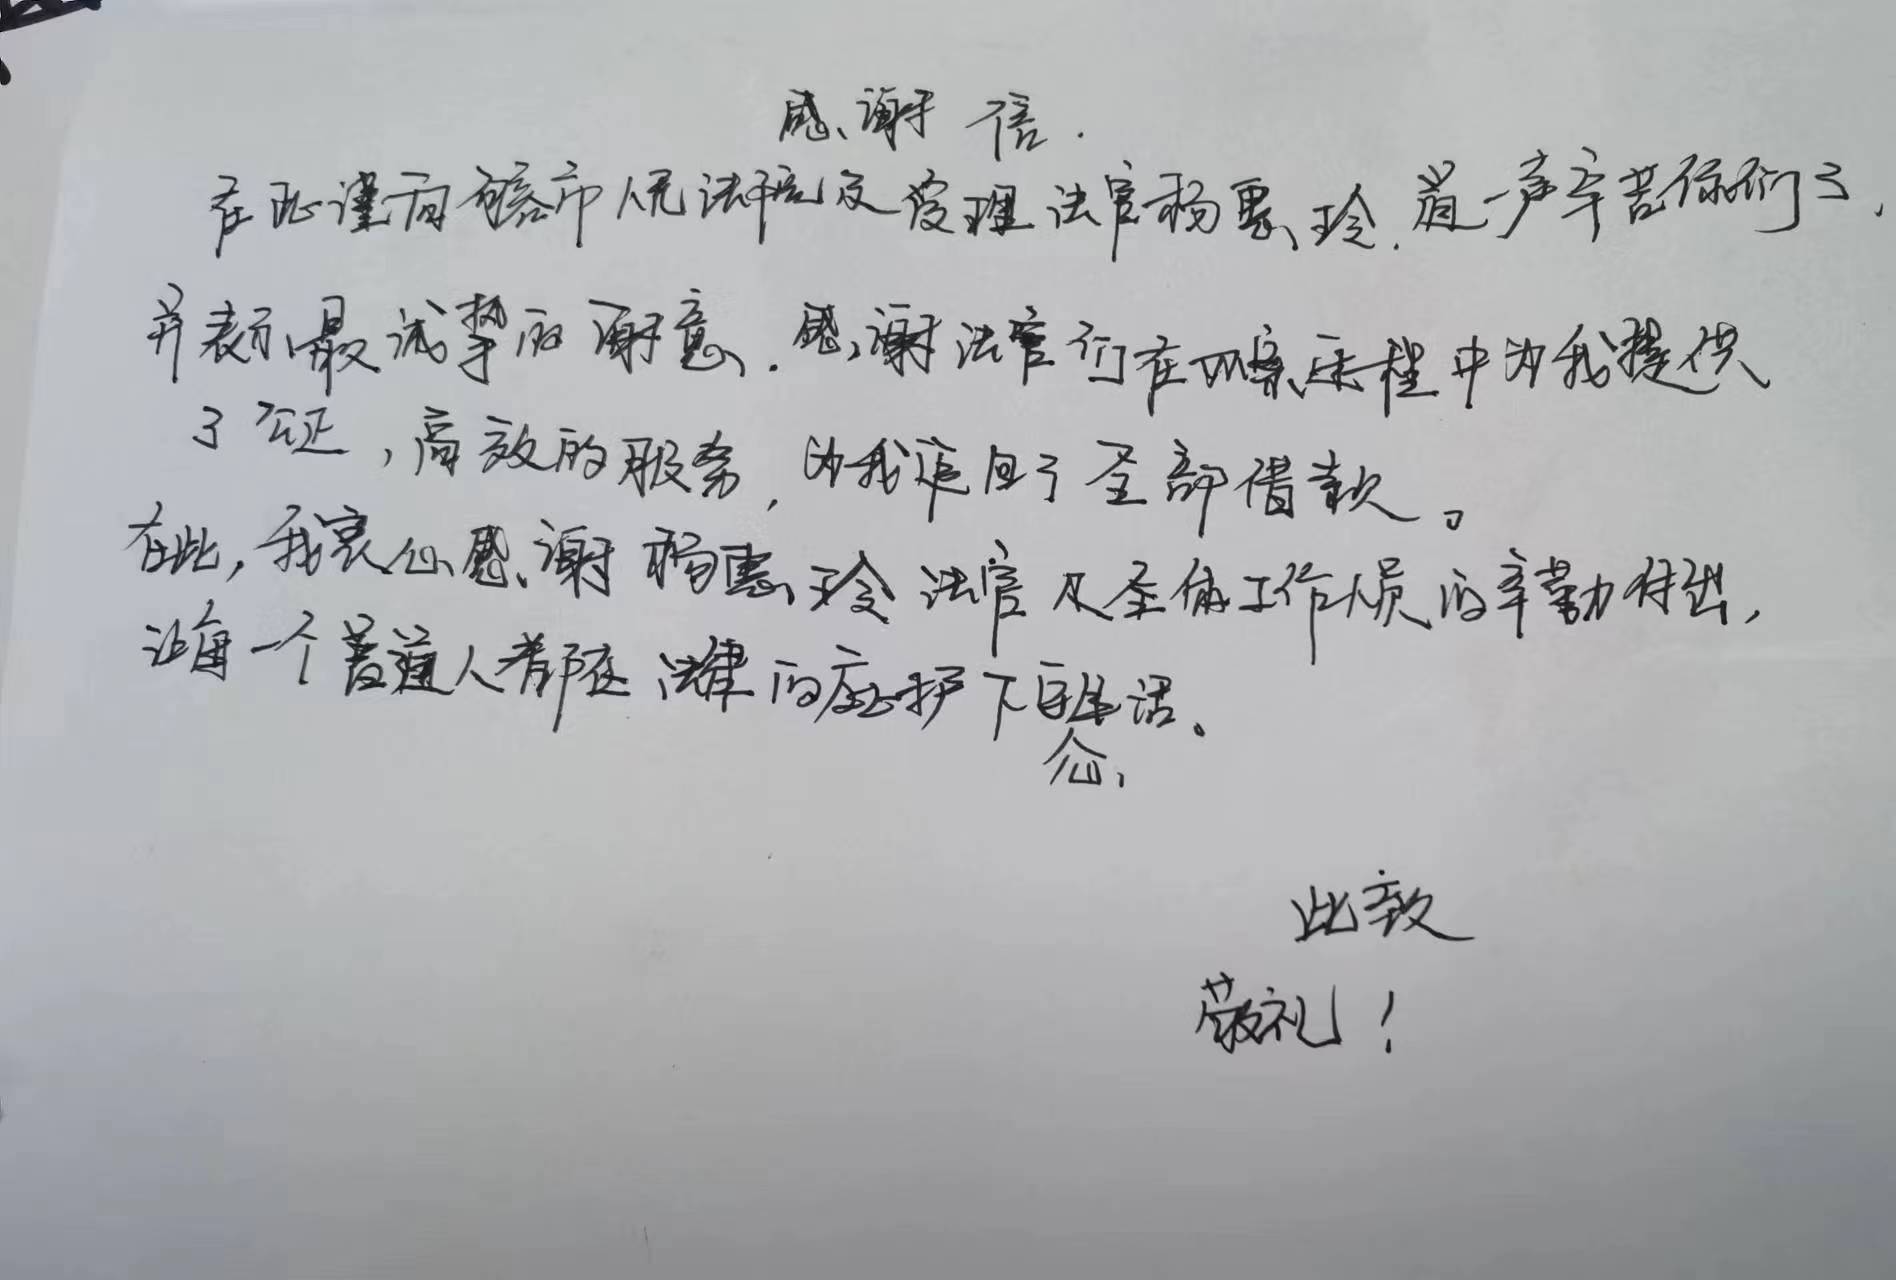 感谢信.
在此谨向句容市人民法院及受理法官杨惠玲.道一声辛苦你们了,
并表示最诚挚的谢意.感谢法官们在办案历程中为我提供
了公正,高效的服务,为我追回了全部借款。
在此,我衷心感谢杨惠玲法官及全体工作人员的辛勤付出,
让每一个普通人都在法律的庇护下安心生活。
此致
敬礼!